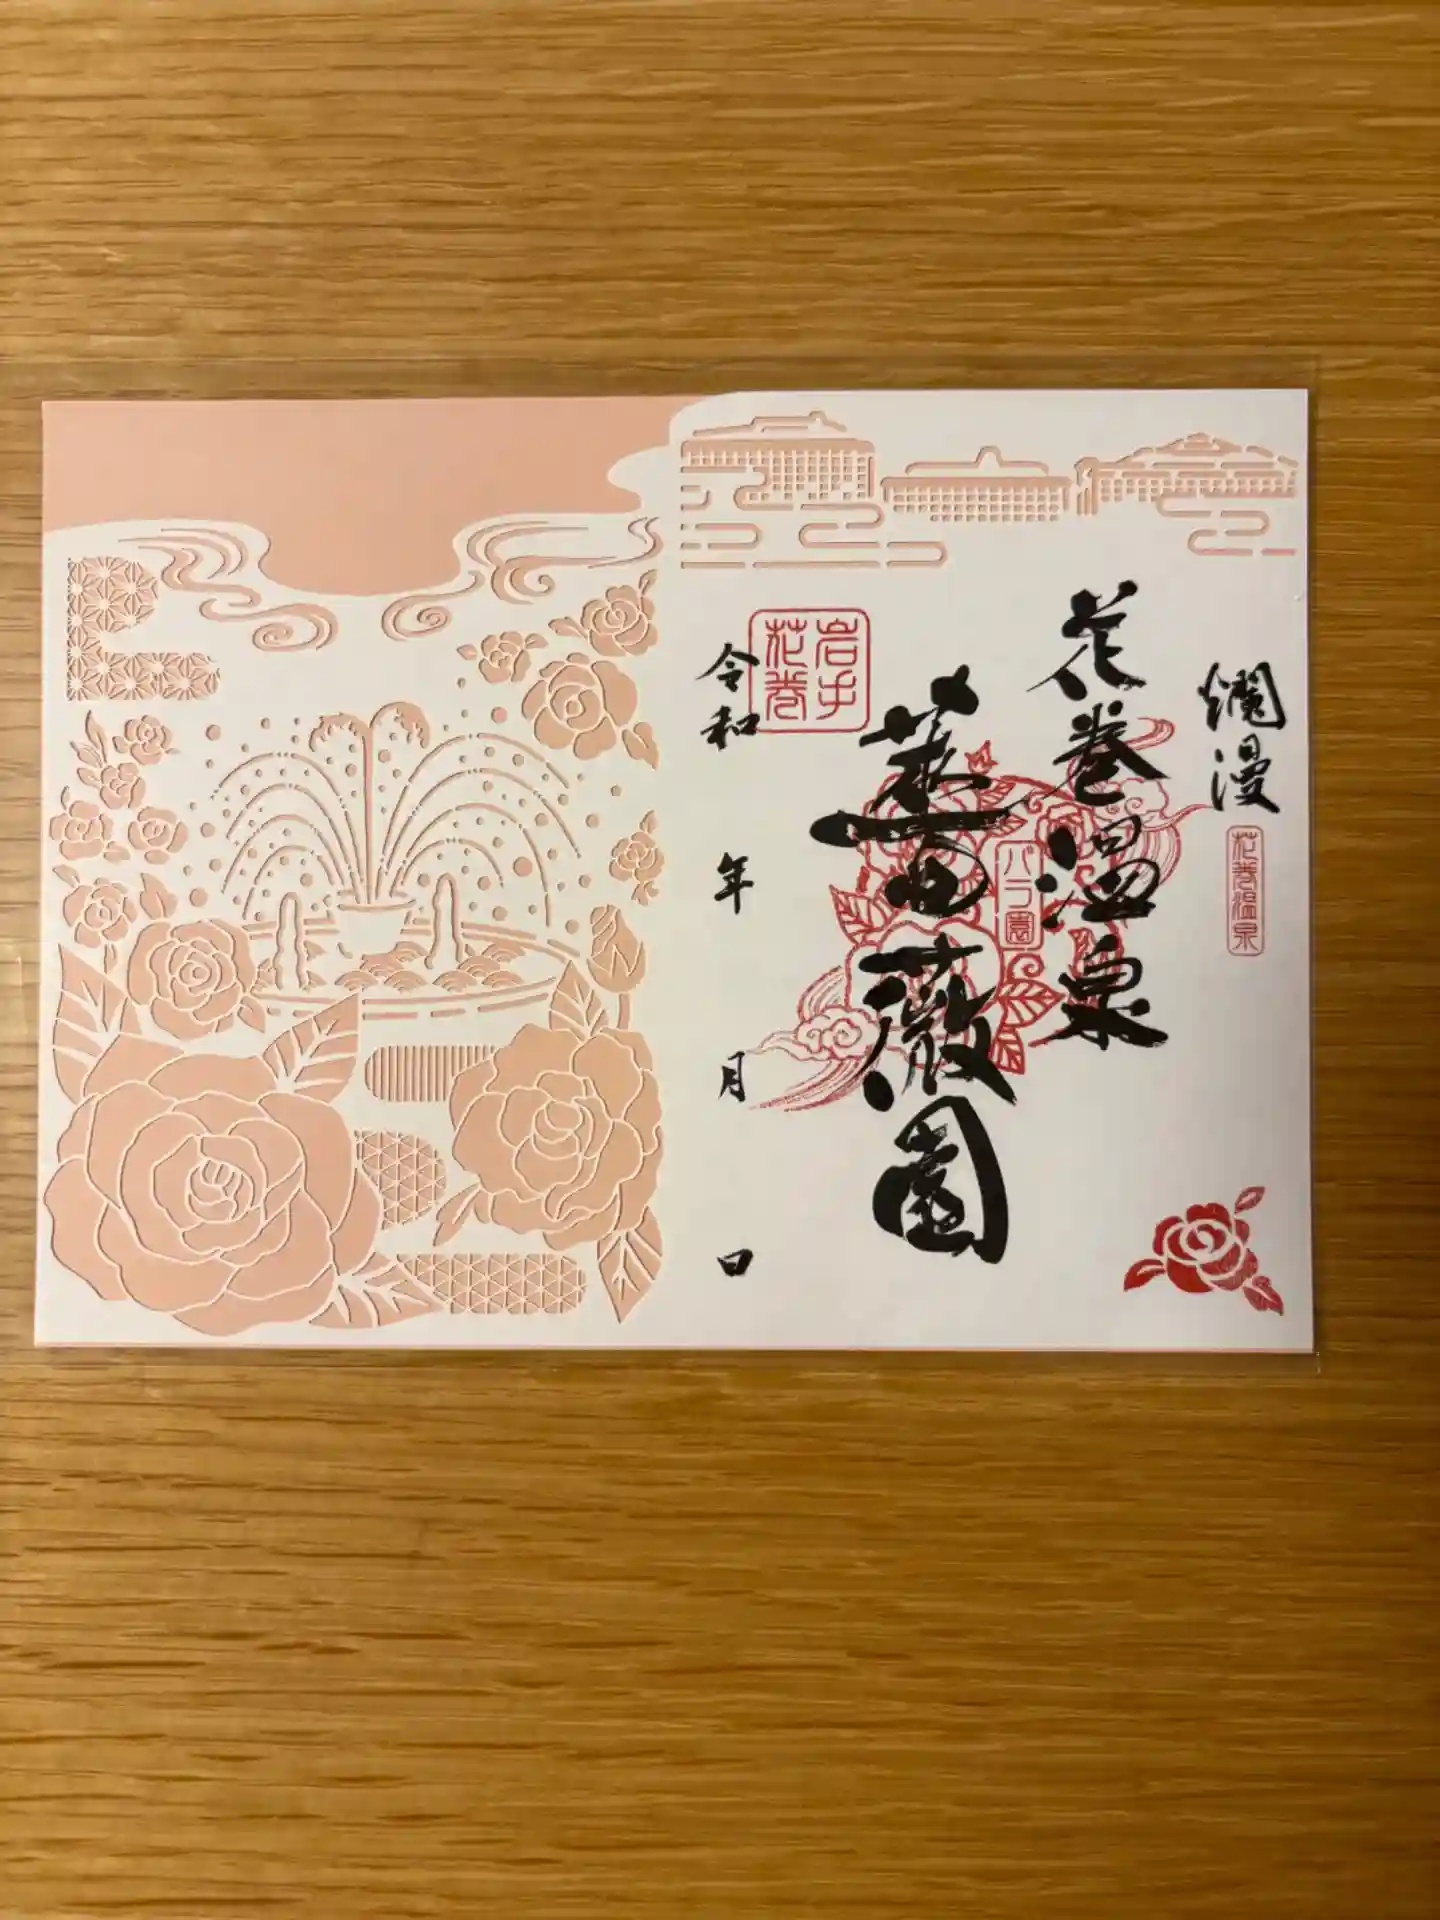 爛漫
花巻温泉
花巻温泉
薔薇園
バラ園
岩手
花巻
令和 年 月 日